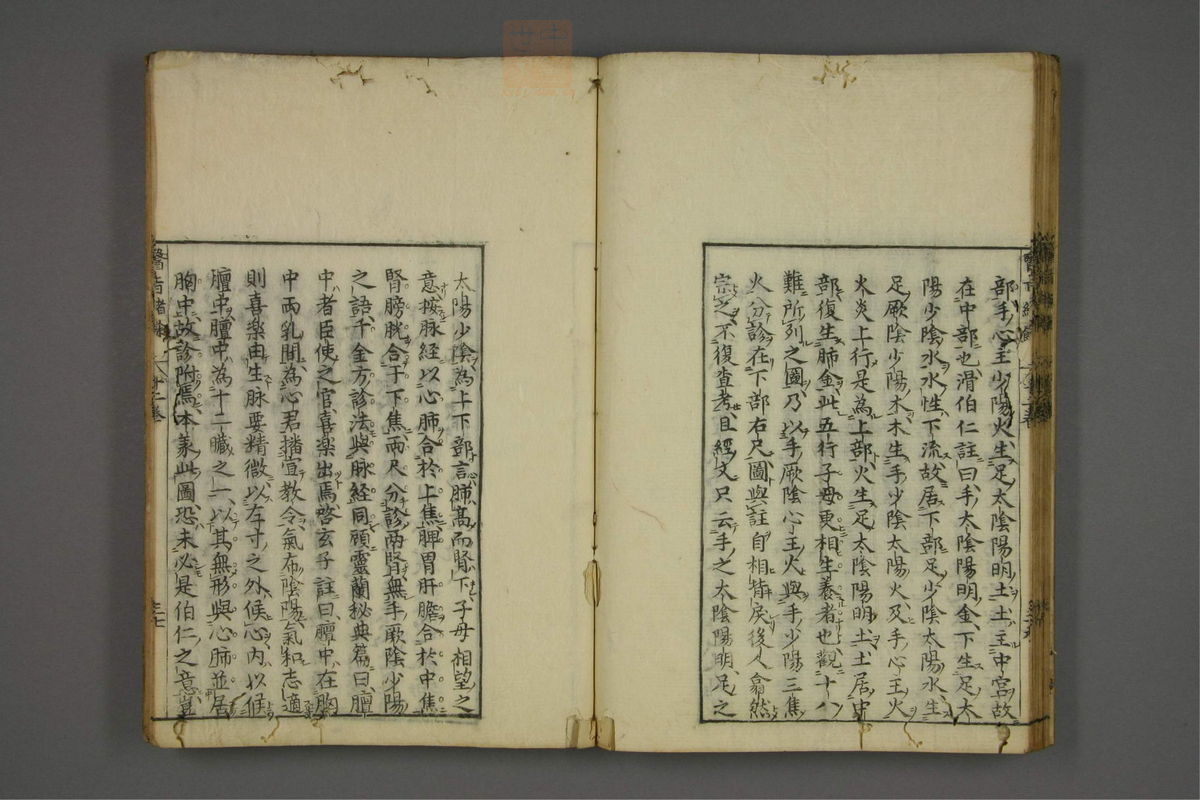 部手心主少陽火生足太陰陽明土土主中宮故
在中部也滑伯仁註曰手太陰陽明金下生足太
陽少陰水水性下流故居下部足少陰太陽水生
足厥陰少陽木木生手少陰太陽火及手心主火
火炎上行是為上部火生足太陰陽明土土居中
部復生肺金此五行子母更相生養者也觀十八
難所列之圖乃以手厥陰心主火與手少陽三焦
火分診在下部右尺圖與註自相背戾後人翕然
宗之不復查考且經文只云手之太陰陽明足之
太陽少陰為上下部言肺髙而腎下子母相望之
意按脉經以心肺合於上焦脾胃肝膽合於中焦
腎膀胱合于下焦兩尺分診兩腎無手厥陰少陽
之語千金方診法與脉經同顧靈蘭秘典篇曰膻
中者臣使之官喜楽出焉啓玄子註曰膻中在胸
中兩乳間為心君播宣教令氣布陰陽氣和志適
則喜楽由生脉要精微以左寸之外候心内以候
膻中膻中為十二臓之一以其無形與心肺並居
胸中故診附焉本義此圖恐未必是伯仁之意豈